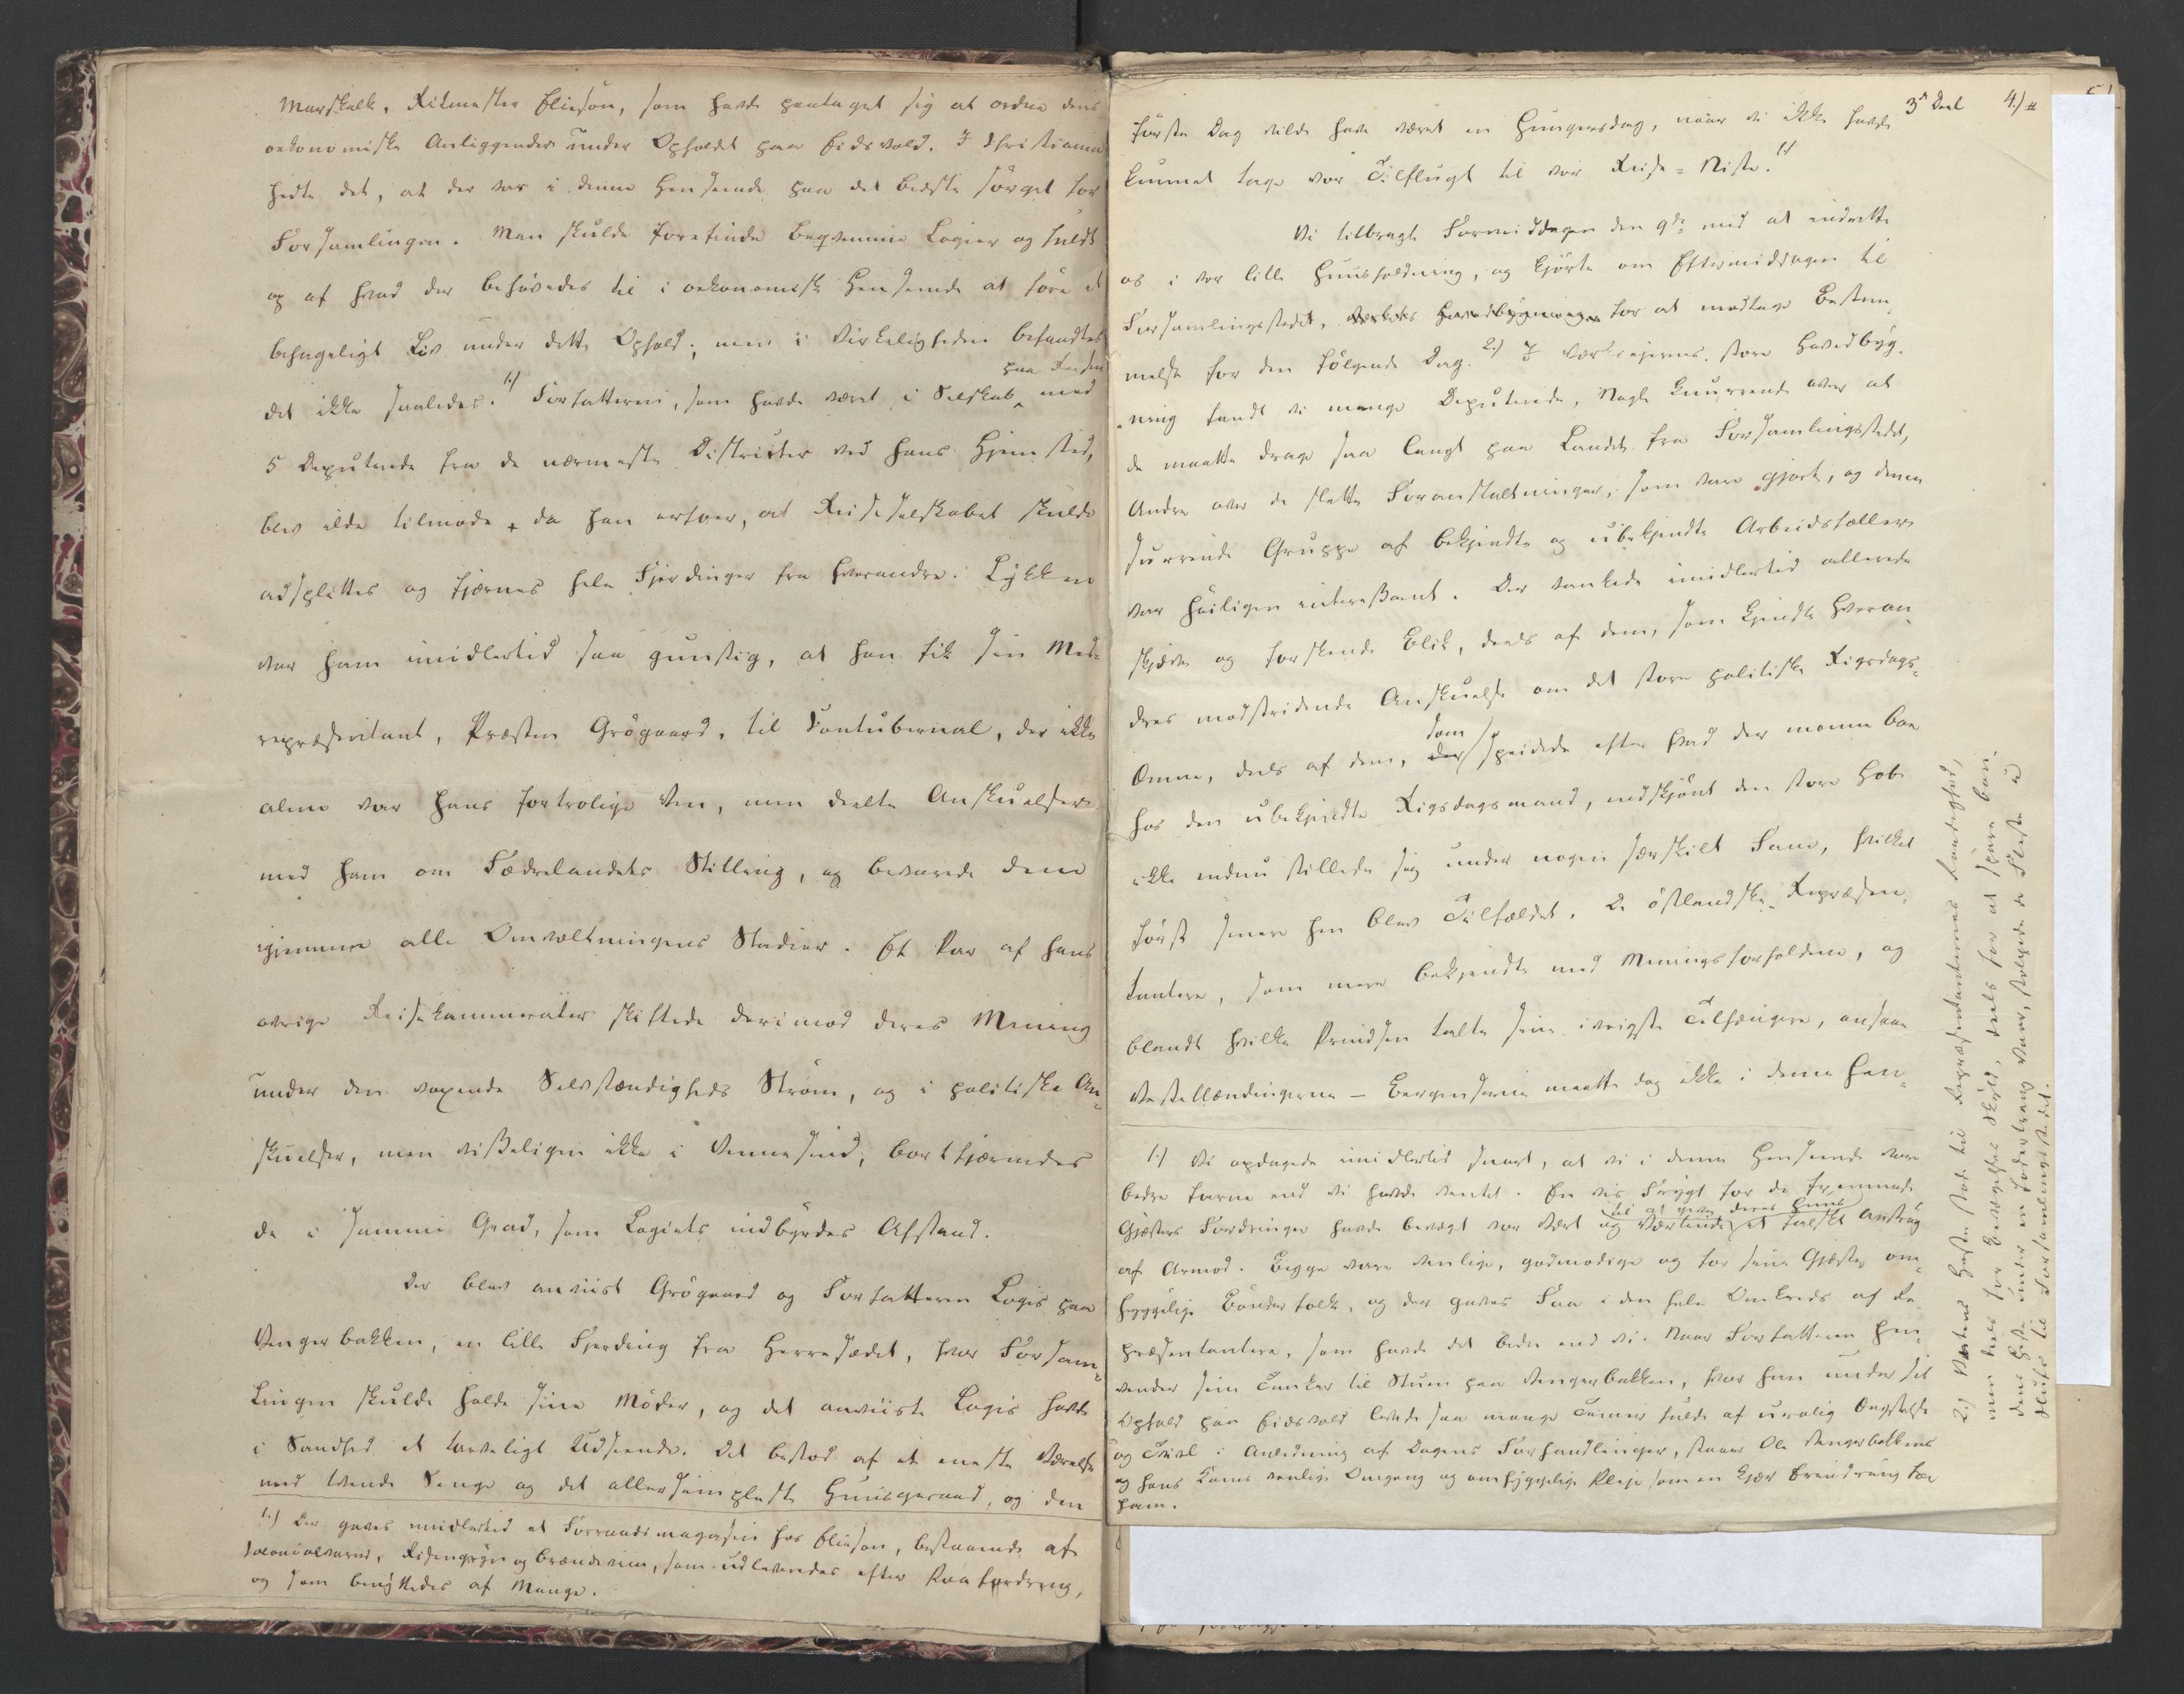 Marskalk, Ritmester Eliesøn, som havde paataget sig at ordne dens
oekonomiske Anliggender under Opholdet paa Eidsvold. I Christiania
hedte det, at der var i denne Henseende paa det bedste sørget for
Forsamlingen. Man skulde forefinde beqvemme Logier og fuldt
op af hvad der behøvedes til i oekonomisk Henseende at føre et
behageligt Liv under dette Ophold; men i Virkeligheden befandtes
det ikke saaledes. 1.) Forfatteren, som havde været i Selskab paa Reisen med
5 Deputerede fra de nærmeste Districter ved hans Hjemsted,
blev ilde tilmode, da han erfoer, at Reiseselskabet skulde
adsplittes og fjærnes hele Fjerdinger fra hverandre. Lykken
var ham imidlertid saa gunstig, at han fik sin Med-
repræsentant, Præsten Grøgaard, til Contubernal, der ikke
alene var hans fortrolige Ven, men deelte Anskuelser
med ham om Fædrelandets Stilling, og bevarede dem
igjennem alle Omvæltningens Stadier. Et Par af hans
øvrige Reisekammerater skiftede derimod deres Mening
under den voxende Selvstændigheds Strøm, og i politiske An-
skuelser, men visseligen ikke i Vennesind, bortfjærnedes
de i samme Grad, som Logiets indbyrdes Afstand.
Der blev anviist Grøgaard og Forfatteren Logis paa
Vengerbakken, en lille Fjerding fra Herresædet, hvor Forsam-
lingen skulde holde sine Møder, og det anviiste Logis havde
i Sandhed et tarveligt Udseende. Det bestod af et eneste Værelse
med tvende Senge og det allersimpleste Huusgeraad, og den
1.) Der gaves imidlertid et Forraadsmagasin hos Eliesøn, bestaaende af
Colonialvarer, Risengryn og Brændeviin, som udleveredes efter Paafordring,
og som benyttedes af Mange.
3die Deel 4.)
første Dag vilde have været en Hungersdag, naar vi ikke havde
kunnet tage vor Tilflugt til vor Reise-Niste. 1.)
Vi tilbragte Formiddagen den 9de med at indrette
os i vor lille Huusholdning, og kjørte om Eftermiddagen til
Forsamlingsstedet, Værkets Hovedbygning for at modtage Bestem-
melse for den følgende Dag. 2.) I Værkseierens store Hovedbyg-
ning fandt vi mange Deputerede, Nogle knurrende over at
de maatte drage saa langt paa Landet fra Forsamlingsstedet,
Andre over de slette Foranstaltninger, som vare gjort, og denne
surrende Gruppe af bekjendte og ubekjendte Arbeidsfæller
var høiligen interessant. Der vankede imidlertid allerede
skjæve og forskende Blik, deels af dem, som kjendte hveran-
dres modstridende Anskuelse om det store politiske Rigsdags-
Æmne, deels af dem, der som speidede efter hvad der monne boe
hos den ubekjendte Rigsdagsmand, endskjønt den store Hob
ikke endnu stillede sig under nogen særskilt Fane, hvilket
først senere hen blev Tilfældet. De østlandske Repræsen-
tantere, som mere bekjendte med Meningsforholdene, og
blandt hvilke Prindsen talte sine ivrigste Tilhængere, ansaae
Vestellændingerne – Bergenserne maatte dog ikke i denne Hen-
1.) Vi opdagede imidlertid snart, at vi i denne Henseende vare
bedre farne end vi havde ventet. En vis Frygt for de fremmede
Gjæsters Fordringer havde bevægt vor Vært og Værtinde til at give deres Huus et falskt Anstrøg
af Armod. Begge vare venlige, godmodige og for sine Gjæster om-
hyggelige Bønderfolk, og der gaves Faa i den hele Omkreds af Re-
præsentantere, som havde det bedre end vi. Naar Forfatteren hen-
vender sine Tanker til Stuen paa Vengerbakken, hvor han under sit
Ophold paa Eidsvold levede saa mange Timer fulde af urolig Ængstelse
og Tvivl i Anledning af Dagens Forhandlinger, staaer Ole Vengerbakkens
og hans Kones venlige Omgang og omhyggelige Pleje som en kjær Erindring for
ham.
2.) Vertens Heste stode til Repræsentanternes Raadighed,
men deels for Bevægelses Skyld, deels for at spare Bon-
dens Heste under en Fodertrang Vaar, spadserede de Fleste
tilfods til Forsamlingsstedet.